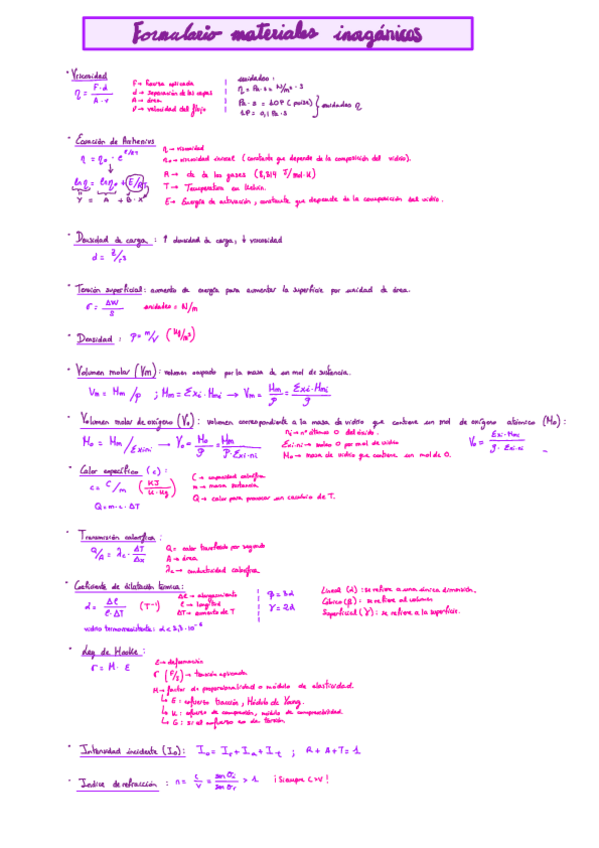 Formulario materiales inorgánicos
· Viscosidad
η = F·d / A·v
F → Fuerza aplicada
d → separación de las capas
A → área
v → velocidad del flujo
unidades:
η = Pa·s = N/m²·s
Pa·s = 10P (poise)
1P = 0,1 Pa·s
} unidades η
· Ecuación de Arrhenius
η = η₀ · e^(E/RT)
ln η = ln η₀ + E/RT
Y = A + B·X
η → viscosidad
η₀ → viscosidad inicial (constante que depende de la composición del vidrio).
R → cte de los gases (8,314 J/mol·K)
T → Temperatura en Kelvin.
E → Energía de activación, constante que depende de la composición del vidrio.
· Densidad de carga: ↑ densidad de carga, ↓ viscosidad
d = Z/r³
· Tensión superficial: aumento de energía para aumentar la superficie por unidad de área.
σ = ΔW / S unidades = N/m
· Densidad: ρ = m/V (Kg/m³)
· Volumen molar (Vm): volumen ocupado por la masa de un mol de sustancia.
Vm = Mm/ρ ; Mm = Σxi·Mmi → Vm = Mm/ρ = Σxi·Mmi/ρ
· Volumen molar de oxígeno (V₀): volumen correspondiente a la masa de vidrio que contiene un mol de oxígeno atómico (M₀):
M₀ = Mm/Σxini → V₀ = M₀/ρ = Mm/ρ·Σxi·ni
ni → nº átomos O del óxido.
Σxi·ni → moles O por mol de vidrio
M₀ → masa de vidrio que contiene un mol de O.
V₀ = Σxi·Mmi / ρ·Σxi·ni
· Calor específico (c):
c = C/m (KJ/K·Kg)
Q = m·c·ΔT
C → capacidad calorífica
m → masa sustancia
Q → calor para provocar un cambio de T.
· Transmisión calorífica:
Q/A = λc · ΔT/Δx
Q = calor transferido por segundo
A → área
λc → conductividad calorífica
· Coeficiente de dilatación térmica:
α = Δl / l·ΔT (T⁻¹)
Δl → alargamiento
l → longitud
ΔT → aumento de T
β = 3α
γ = 2α
Lineal (α): se refiere a una única dimensión.
Cúbica (β): se refiere al volumen
Superficial (γ): se refiere a la superficie.
vidrio termorresistente:
· Ley de Hooke:
σ = M · ε
ε → deformación
σ (F/S) → tensión aplicada
M → factor de proporcionalidad o módulo de elasticidad.
↳ E: esfuerzo tracción, Módulo de Young.
↳ K: esfuerzo de compresión, módulo de compresibilidad
↳ G: si el esfuerzo es de torsión
· Intensidad incidente (I₀): I₀ = Ir + Ia + It ; R + A + T = 1
· Índice de refracción: n = c/v = sen θi / sen θr > 1 ¡Siempre c>v!